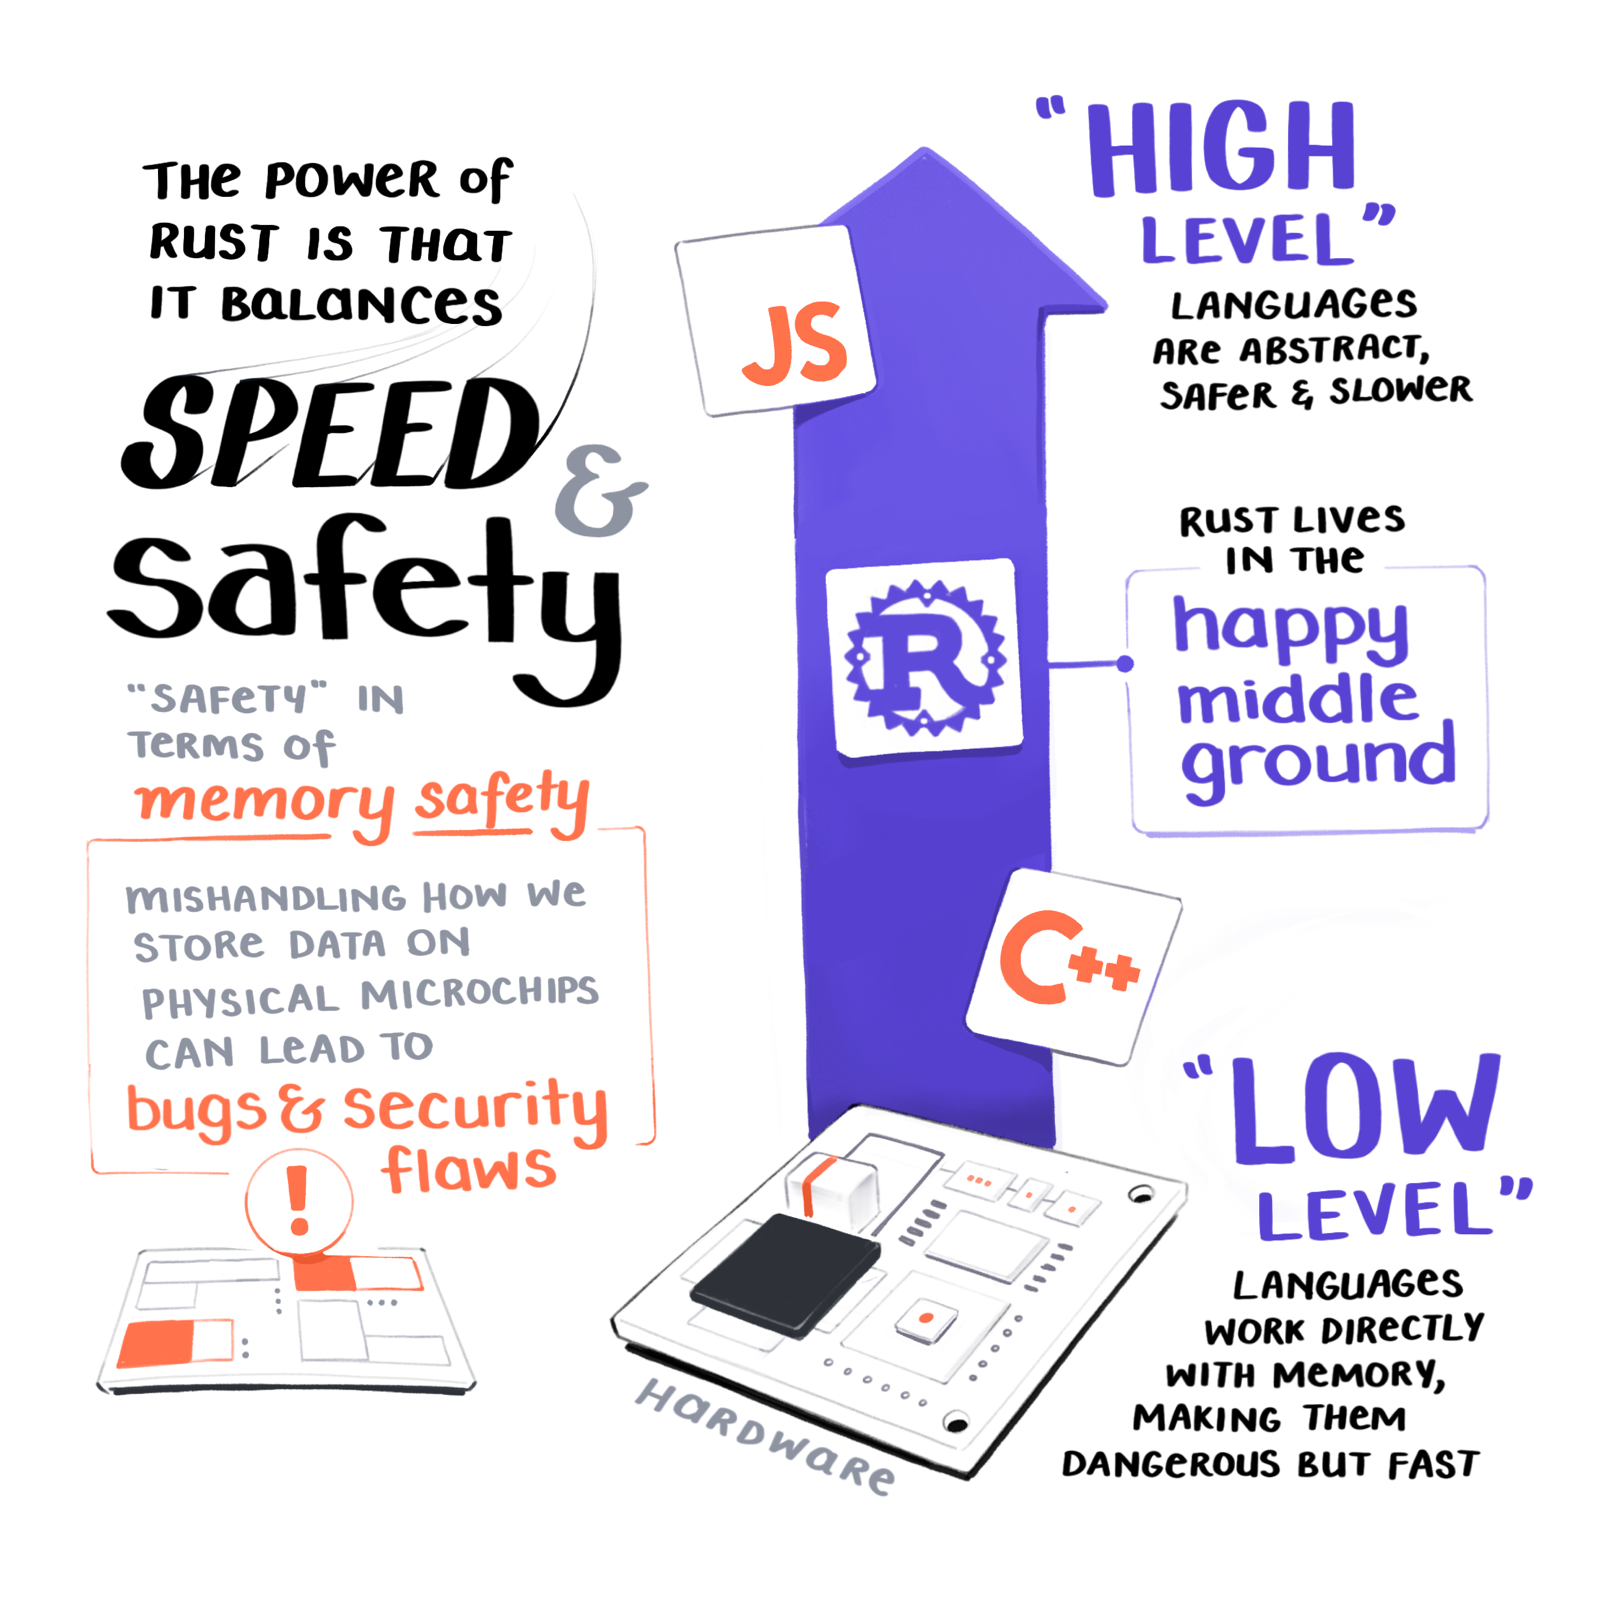 THE POWER OF
RUST IS THAT
IT BALANCES
SPEED
&
safety
"SAFETY" IN
TERMS OF
memory safety
MISHANDLING HOW WE
STORE DATA ON
PHYSICAL MICROCHIPS
CAN LEAD TO
bugs & security
flaws
!
JS
R
C++
HARDWARE
"HIGH
LEVEL"
LANGUAGES
ARE ABSTRACT,
SAFER & SLOWER
RUST LIVES
IN THE
happy
middle
ground
"LOW
LEVEL"
LANGUAGES
WORK DIRECTLY
WITH MEMORY,
MAKING THEM
DANGEROUS BUT FAST